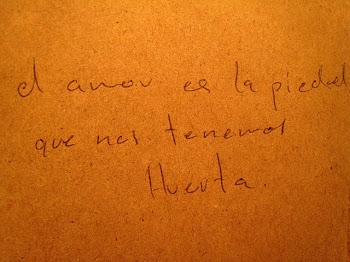 el amor es la piedad
que nos tenemos
Huerta.